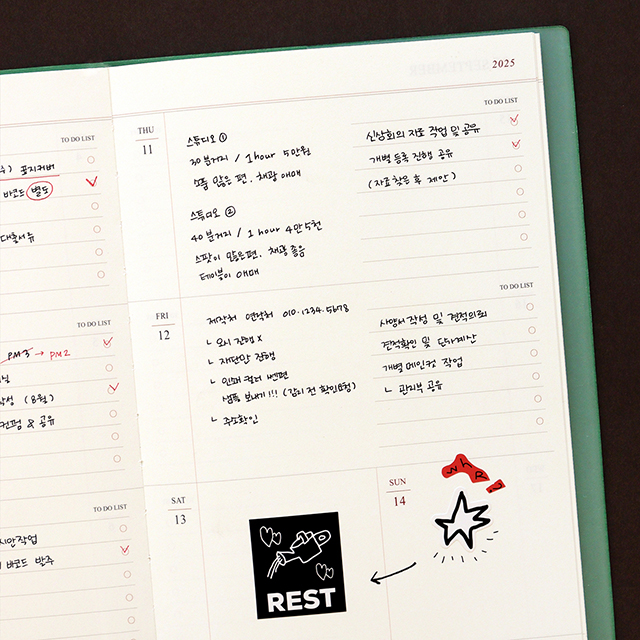 2025
TO DO LIST
별도
대충서류
TO DO LIST
PM3 → PM2
(8월)
컨펌 & 공유
TO DO LIST
시안작업
바코드 발주
THU
11
스튜디오 ①
30분거리 / 1hour 5만원
소품 많은 편. 채광 애매
스튜디오 ②
40분거리 / 1hour 4만5천
스팟이 많은편. 채광 좋음
테이블이 애매
TO DO LIST
신상회의 자료 작업 및 공유
개별 등록 진행 공유
(자료 찾은 후 제안)
FRI
12
제작처 연락처 010.1234.5678
ㄴ 오시 진행 X
ㄴ 재단만 진행
ㄴ 인쇄 컬러
샘플 보내기!!! (감리 전 확인요청)
ㄴ 주소확인
TO DO LIST
사양서 작성 및 견적의뢰
견적확인 및 단가계산
개별 메인컷 작업
ㄴ 관리부 공유
SAT
13
REST
SUN
14